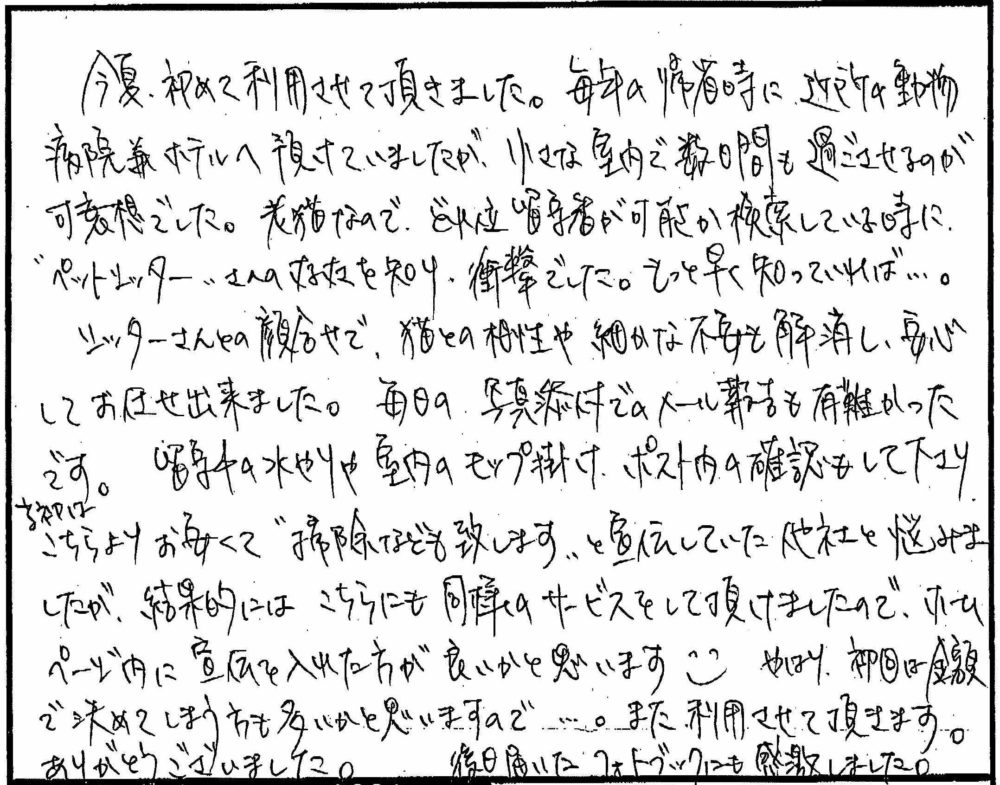 今夏、初めて利用させて頂きました。毎年の帰省時に近所の動物
病院兼ホテルへ預けていましたが、小さな室内で数日間も過ごさせるのが
可哀想でした。老猫なので、どれ位留守番が可能か検索している時に、
"ペットシッター"さんの存在を知り、衝撃でした。もっと早く知っていれば…。
シッターさんとの顔合せで、猫との相性や細かな不安も解消し、安心
してお任せ出来ました。毎日の写真添付でのメール報告も有難かった
です。留守中の水やりや室内のモップ掛け、ポスト内の確認もして下さり
当初は
こちらよりお安くて"掃除なども致します"と宣伝していた他社と悩みま
したが、結果的にはこちらにも同様のサービスをして頂けましたので、ホーム
ページ内に宣伝を入れた方が良いかと思います やはり、初回は金額
で決めてしまう方も多いかと思いますので……。また利用させて頂きます。
ありがとうございました。 後日届いたフォトブックにも感激しました。